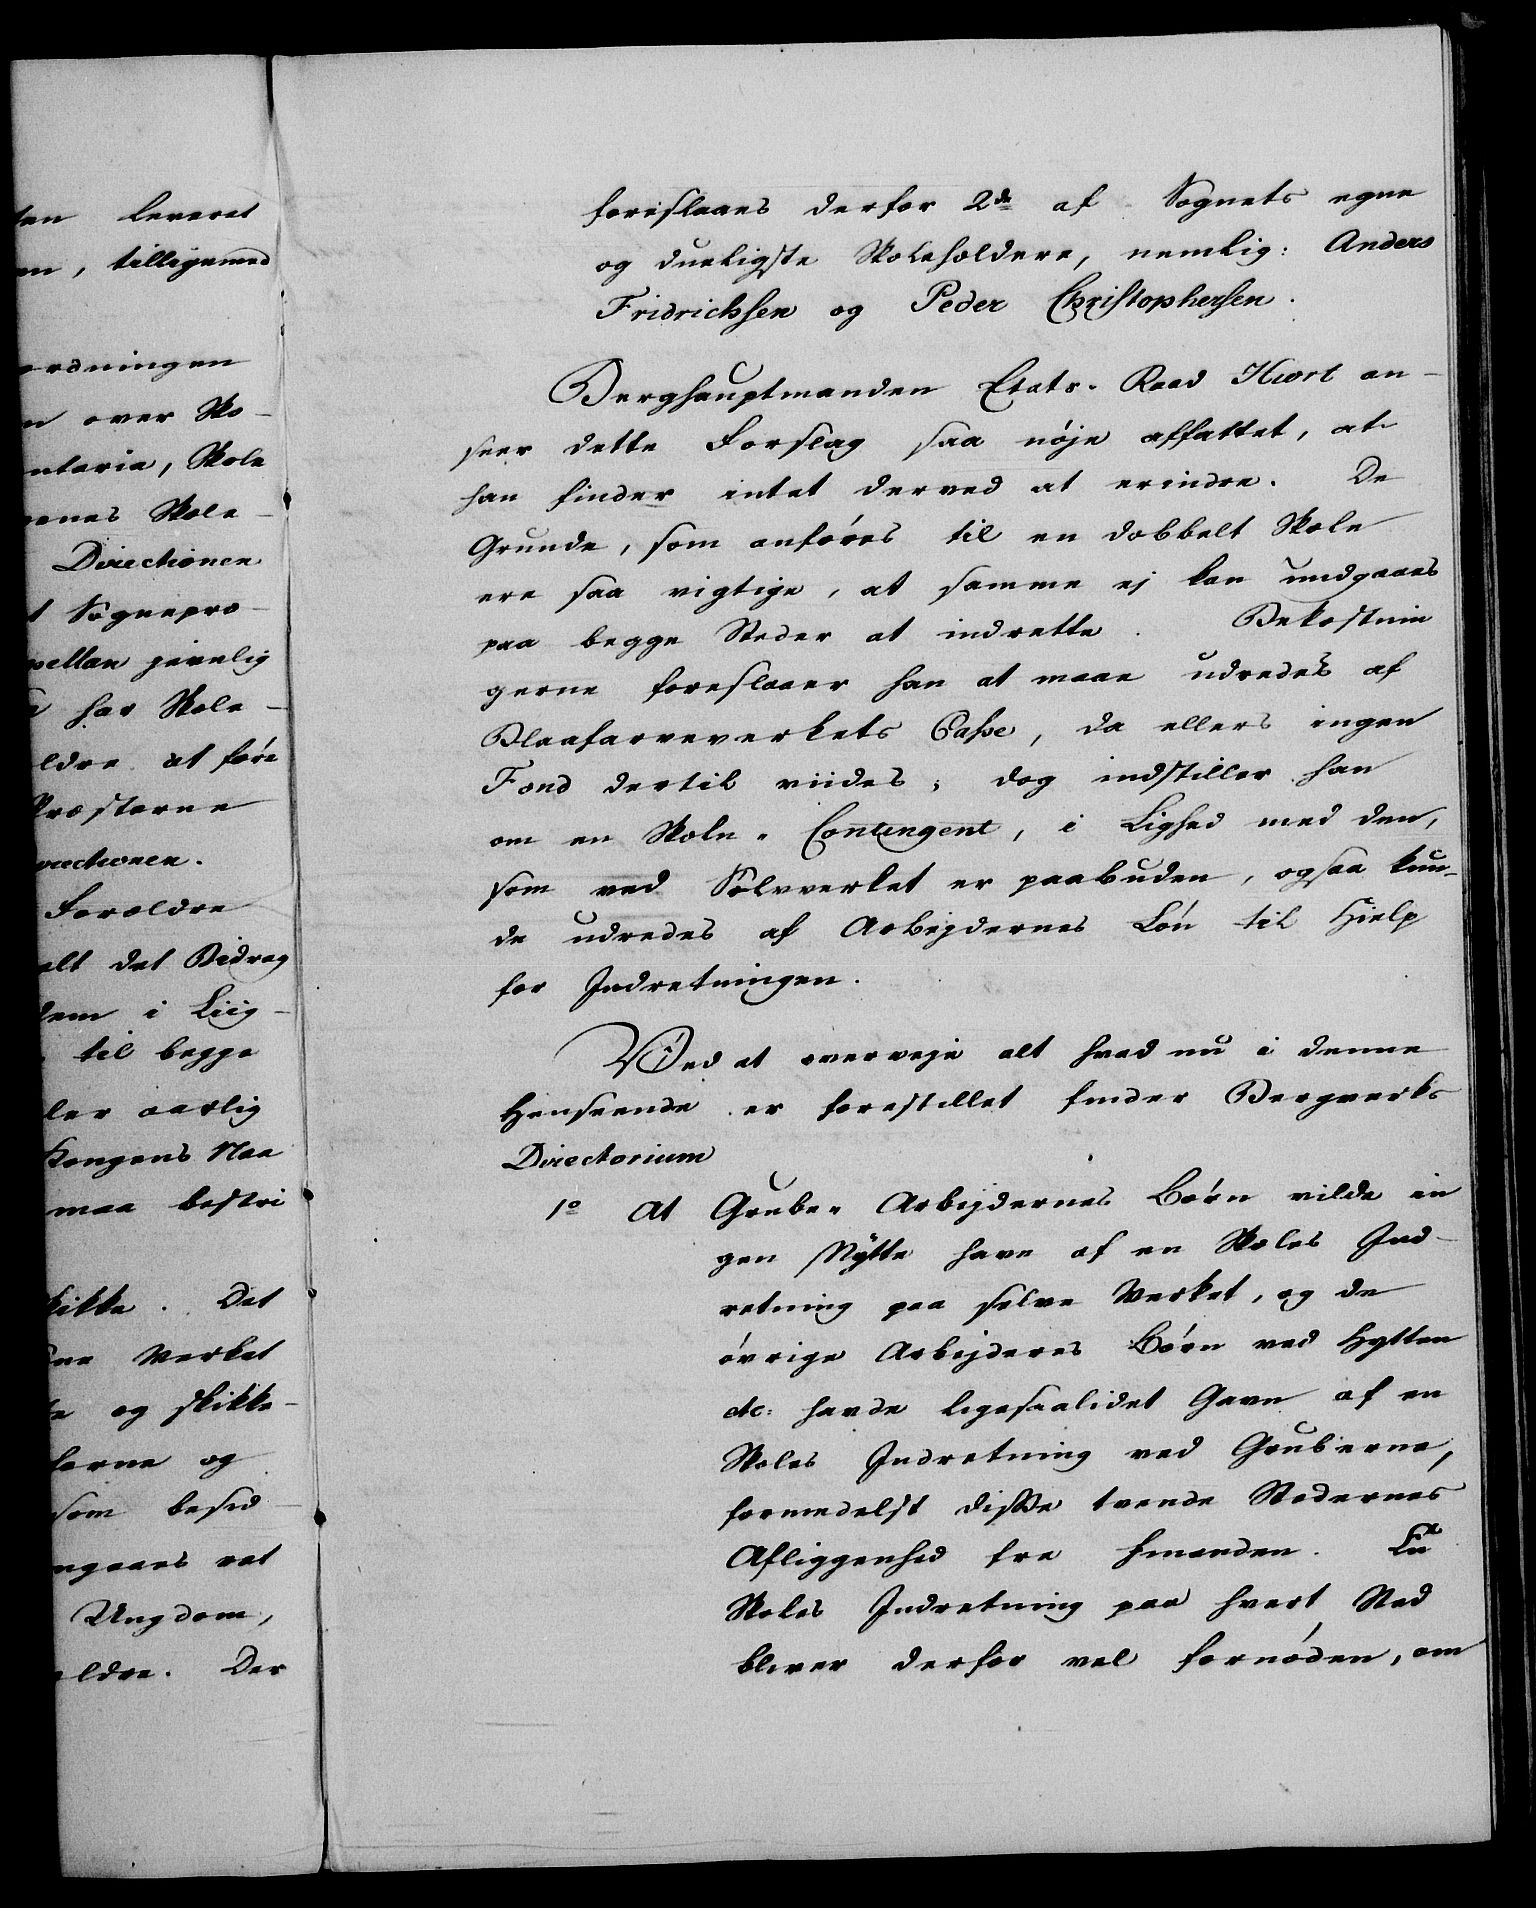 ten leveret
en, tilligemed
ordningen
n over Sko-
ntaria, Skole
enes Skole-
Directionen
t Sognepræ-
pellan jevnlig
har Skole-
ldre at føre
Præsterne
rectionen.
Forældre
alt det Bidrag
dem i Liig-
til begge
ler aarlig
Kongens Naa
maa bestri
kikke. Det
ne Verket
e og skikke-
ferne og
som besid-
ngaaes ret
Ungdom,
ldre. Der
foreslaaes derfor 2de af Sognets egne
og dueligste Skoleholdere, nemlig: Anders
Fridrichsen og Peder Christophersen.
Berghauptmanden Etats-Raad Hiort an-
seer dette Forslag saa nøje affattet, at
han finder intet derved at erindre. De
Grunde, som anføres til en dobbelt Skole
ere saa vigtige, at samme ej kan undgaaes
paa begge Steder at indrette. Bekostnin
gerne foreslaaer han at maae udredes af
Blaafarveverkets Casse, da ellers ingen
Fond dertil viides; dog indstiller han
om en Skole-Contingent, i Lighed med den,
som ved Sølvverket er paabuden, ogsaa kun-
de udredes af Arbejdernes Løn til Hielp
for Indretningen.
Ved at overveje alt hvad nu i denne
Henseende er forestillet finder Bergverks
Directorium
1o At Grube-Arbejdernes Børn vilde in
gen Nytte have af en Skoles Ind-
retning paa selve Verket, og de
øvrige Arbejderes Børn ved Hytten
etc: havde ligesaalidet Gavn af en
Skoles Indretning ved Gruberne,
formedelst disse tvende Stedernes
Afliggenhed fra hinanden. En
Skoles Indretning paa hvert Sted
bliver derfor vel fornøden, om